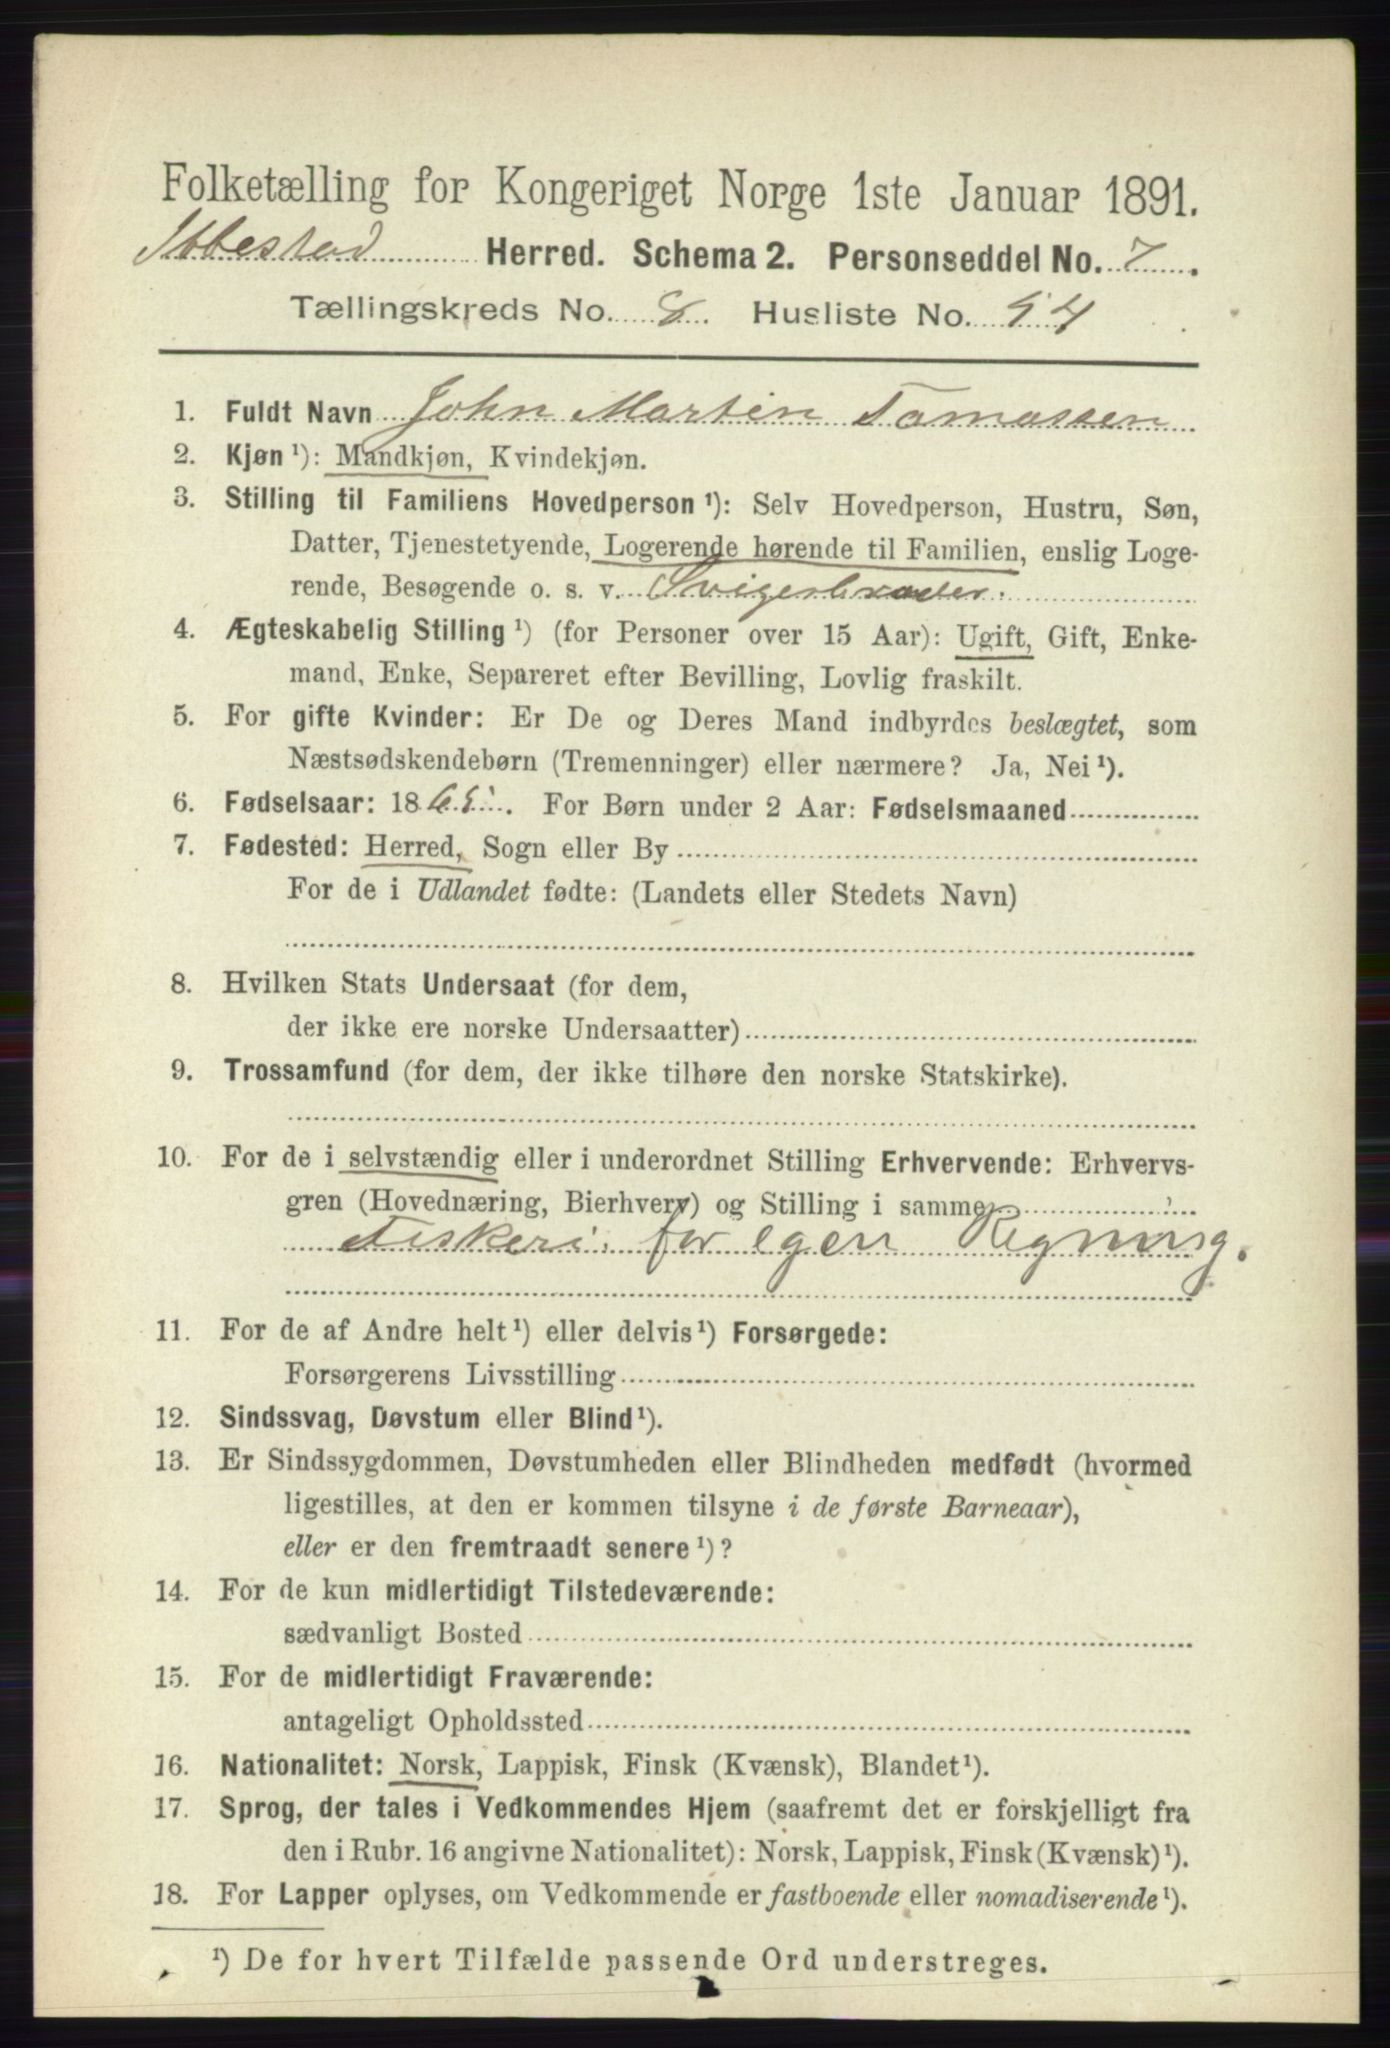 Folketælling for Kongeriget Norge 1ste Januar 1891.
Ibbestad Herred. Schema 2. Personseddel No. 7.
Tællingskreds No. 8. Husliste No. 54
1. Fuldt Navn John Martin Tomassen
2. Kjøn¹): Mandkjøn, Kvindekjøn.
3. Stilling til Familiens Hovedperson¹): Selv Hovedperson, Hustru, Søn,
Datter, Tjenestetyende, Logerende hørende til Familien, enslig Loge-
rende, Besøgende o. s. v. Svigerbroder.
4. Ægteskabelig Stilling¹) (for Personer over 15 Aar): Ugift, Gift, Enke-
mand, Enke, Separeret efter Bevilling, Lovlig fraskilt.
5. For gifte Kvinder: Er De og Deres Mand indbyrdes beslægtet, som
Næstsødskendebørn (Tremenninger) eller nærmere? Ja, Nei¹).
6. Fødselsaar: 1865. For Børn under 2 Aar: Fødselsmaaned
7. Fødested: Herred, Sogn eller By
For de i Udlandet fødte: (Landets eller Stedets Navn)
8. Hvilken Stats Undersaat (for dem,
der ikke ere norske Undersaatter)
9. Trossamfund (for dem, der ikke tilhøre den norske Statskirke).
10. For de i selvstændig eller i underordnet Stilling Erhvervende: Erhvervs-
gren (Hovednæring, Bierhverv) og Stilling i samme
Fiskeri for egen Regning.
11. For de af Andre helt¹) eller delvis¹) Forsørgede:
Forsørgerens Livsstilling
12. Sindssvag, Døvstum eller Blind¹).
13. Er Sindssygdommen, Døvstumheden eller Blindheden medfødt (hvormed
ligestilles, at den er kommen tilsyne i de første Barneaar),
eller er den fremtraadt senere¹)?
14. For de kun midlertidigt Tilstedeværende:
sædvanligt Bosted
15. For de midlertidigt Fraværende:
antageligt Opholdssted
16. Nationalitet: Norsk, Lappisk, Finsk (Kvænsk), Blandet¹).
17. Sprog, der tales i Vedkommendes Hjem (saafremt det er forskjelligt fra
den i Rubr. 16 angivne Nationalitet): Norsk, Lappisk, Finsk (Kvænsk)¹).
18. For Lapper oplyses, om Vedkommende er fastboende eller nomadiserende¹).
¹) De for hvert Tilfælde passende Ord understreges.